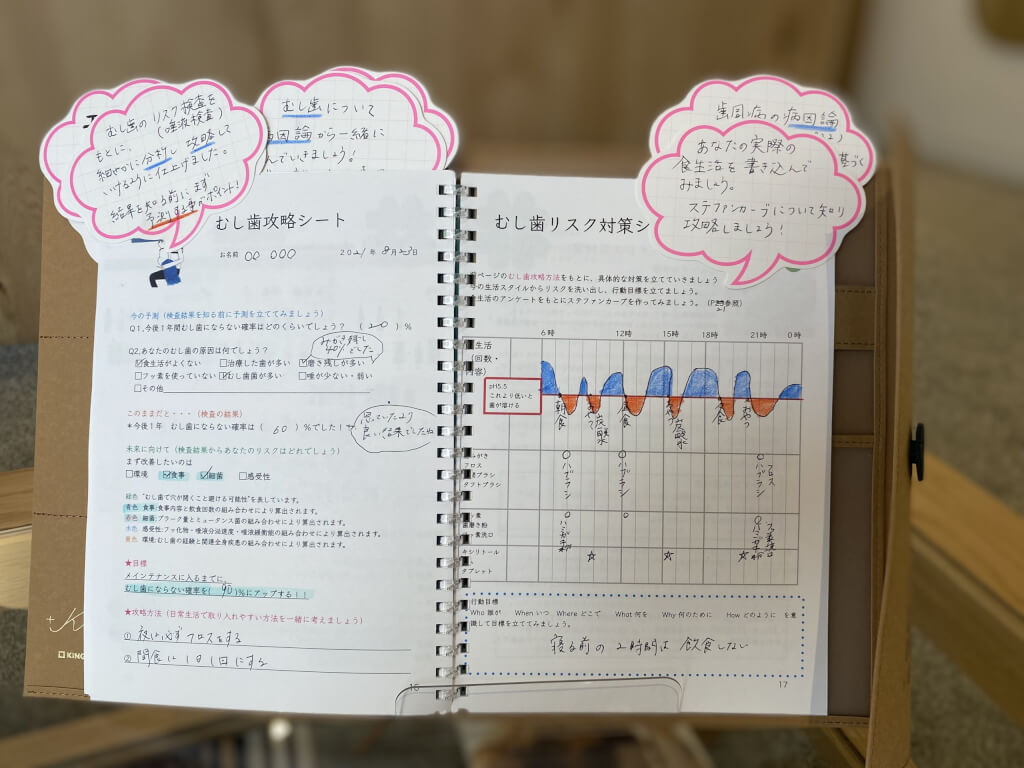 むし歯のリスク検査を
(唾液検査)
もとに、
細やかに分析し攻略して
いけるように仕上げました。
結果を知る前にまず
予測する事がポイント!
むし歯について
病因論から一緒に
んでいきましょう!
歯周病の病因論
基づく
あなたの実際の
食生活を書き込んで
みましょう。
ステファンカーブについて知り
攻略しましょう!
むし歯攻略シート
お名前 〇〇 〇〇〇 2021年 8月23日
今の予測(検査結果を知る前に予測を立ててみましょう)
Q1.今後1年間むし歯にならない確率はどのくらいでしょう? (20)%
みがき残し
40%でした
Q2.あなたのむし歯の原因は何でしょう?
☑食生活がよくない □治療した歯が多い ☑磨き残しが多い
□フッ素を使っていない ☑むし歯菌が多い □唾が少ない・弱い
□その他
このままだと・・・(検査の結果)
*今後1年 むし歯にならない確率は(60)%でした!
思っていたより
良い結果でしたね
未来に向けて(検査結果からあなたのリスクはどれでしょう)
まず改善したいのは
□環境 ☑食事 ☑細菌 □感受性
緑色 "むし歯で穴が開くこと避ける可能性"を表しています。
青色 食事:食事内容と飲食回数の組み合わせにより算出されます。
赤色 細菌:プラーク量とミュータンス菌の組み合わせにより算出されます。
水色 感受性:フッ化物・唾液分泌速度・唾液緩衝能の組み合わせにより算出されます。
黄色 環境:むし歯の経験と関連全身疾患の組み合わせにより算出されます。
★目標
メインテナンスに入るまでに、
むし歯にならない確率を(90)%にアップする!!
★攻略方法(日常生活で取り入れやすい方法を一緒に考えましょう)
①夜は必ずフロスをする
②間食は1日1回にする
16
KING
むし歯リスク対策シ
ページのむし歯攻略方法をもとに、具体的な対策を立てていきましょう
今の生活スタイルからリスクを洗い出し、行動目標を立てましょう。
食生活のアンケートをもとにステファンカーブを作ってみましょう。(P21参照)
6時 9時 12時 15時 18時 21時 0時
生活
(回数・
内容)
pH5.5
これより低いと
歯が溶ける
朝食 おやつ 炭酸水 昼食 おやつ 炭酸水 夕食 おやつ
みがき
フロス
間ブラシ
タフトブラシ
〇ハブラシ 〇ハブラシ 〇ハブラシ フロス
ッ素
歯磨き粉
ッ素洗口
〇ハミガキ粉 〇 〇ハミガキ粉 フッ素洗口
キシリトール
タブレット
☆ ☆ ☆
行動目標
Who 誰が When いつ Where どこで What 何を Why 何のために How どのように を意
識して目標を立ててみましょう。
寝る前の2時間は飲食しない
17